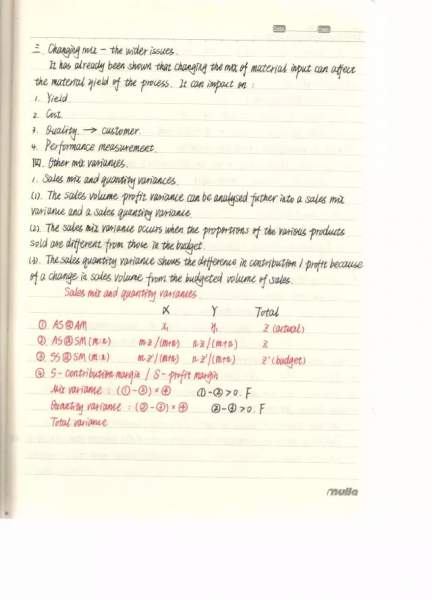 三 Changing mix – the wider issues.
It has already been shown that changing the mix of material input can affect
the material yield of the process. It can impact on :
1. Yield
2. Cost
3. Quality → customer.
4. Performance measurement.
Other mix variances.
1. Sales mix and quantity variances.
(1). The sales volume profit variance can be analysed futher into a sales mix
variance and a sales quantity variance.
(2). The sales mix variance occurs when the proportions of the various products
sold are different from those in the budget.
(3). The sales quantity variance shows the difference in contribution / profit because
of a change in sales volume from the budgeted volume of sales.
Sales mix and quantity variances
X Y Total
① AS@AM x₁ y₁ z (actual)
② AS@SM (m:n) m·z/(m+n) n·z/(m+n) z
③ SS@SM (m:n) m·z'/(m+n) n·z'/(m+n) z' (budget)
④ S- contribution margin / S- profit margin
Mix variance : (①-②) × ④ ①-②>0. F
Quantity variance : (②-③) × ④ ②-③>0. F
Total variance